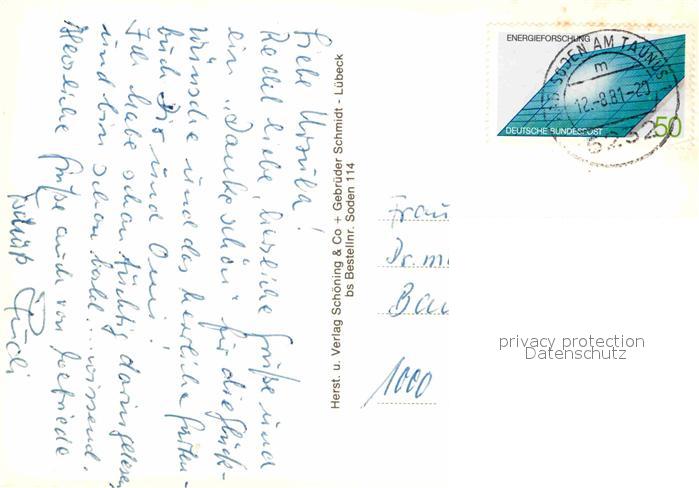 Liebe Ursula!
Recht liebe, herzliche Grüße und
ein "Dankeschön" für die Glück-
wünsche und das herrliche Garten-
buch Dir und Omi!
Ich habe schon tüchtig darin gelesen
und bin schon bald... wissend.
Herzliche Grüße auch von
Rudi
Herst. u. Verlag Schöning & Co + Gebrüder Schmidt - Lübeck
bs Bestellnr. Soden 114
ENERGIEFORSCHUNG
DEUTSCHE BUNDESPOST
50
SODEN AM TAUNUS
m
12.-8.81-20
6232
Frau
Dr. m
Bau
1000
privacy protection
Datenschutz